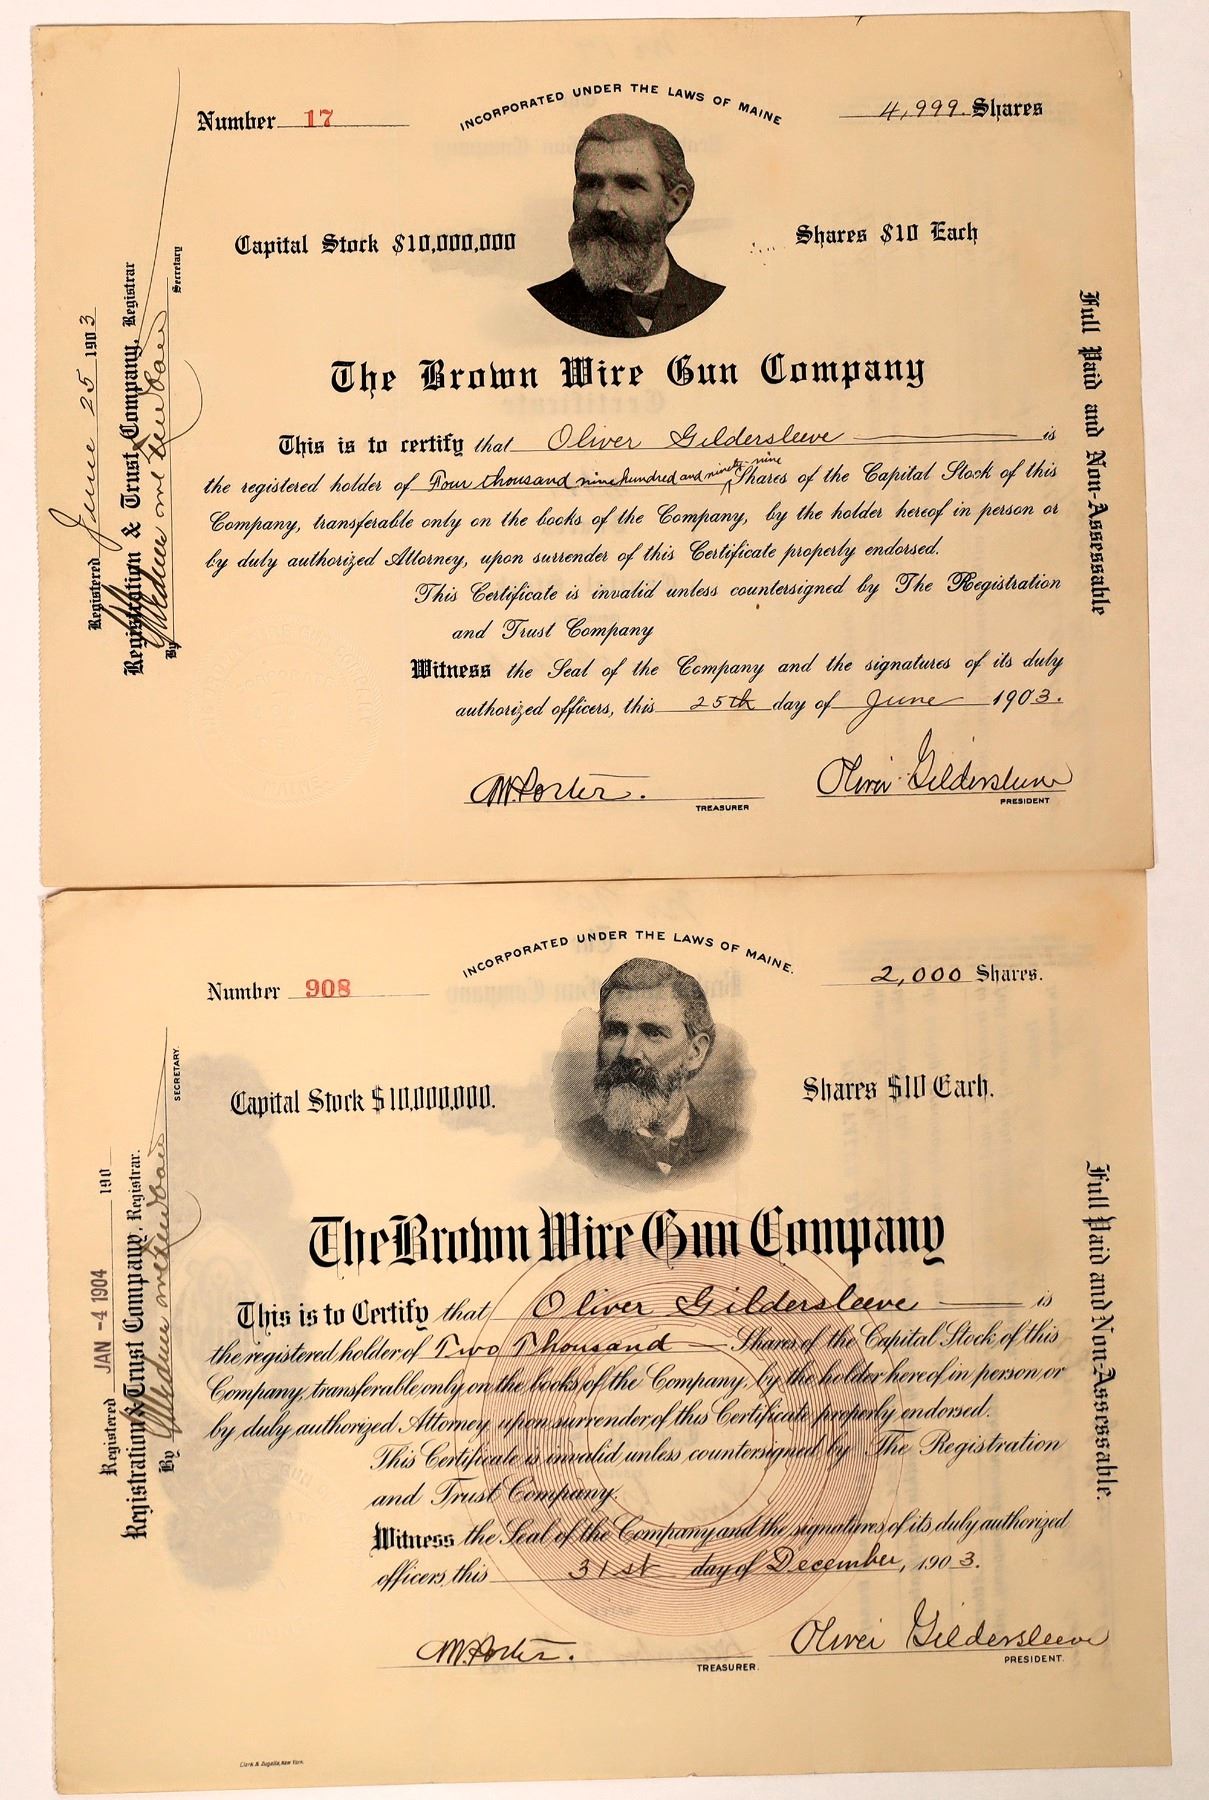 INCORPORATED UNDER THE LAWS OF MAINE
Number 17
4,999. Shares
Capital Stock $10,000,000
Shares $10 Each
The Brown Wire Gun Company
This is to certify that Oliver Gildersleeve is
the registered holder of Four thousand nine hundred and ninety nine Shares of the Capital Stock of this
Company, transferable only on the books of the Company, by the holder hereof in person or
by duly authorized Attorney, upon surrender of this Certificate properly endorsed.
This Certificate is invalid unless countersigned by The Registration
and Trust Company
Witness the Seal of the Company and the signatures of its duly
authorized officers, this 25th day of June 1903.
Porter.
TREASURER
Oliver Gildersleeve
PRESIDENT
Registered June 25 1903
Registration & Trust Company, Registrar
By
Secretary
Full Paid and Non-Assessable
INCORPORATED UNDER THE LAWS OF MAINE.
Number 908
2,000 Shares.
Capital Stock $10,000,000.
Shares $10 Each.
The Brown Wire Gun Company
This is to Certify that Oliver Gildersleeve is
the registered holder of Two Thousand Shares of the Capital Stock of this
Company, transferable only on the books of the Company, by the holder hereof in person or
by duly authorized Attorney, upon surrender of this Certificate properly endorsed.
This Certificate is invalid unless countersigned by The Registration
and Trust Company.
Witness the Seal of the Company and the signatures of its duly authorized
officers, this 31st day of December, 1903.
Porter.
TREASURER.
Oliver Gildersleeve
PRESIDENT.
Registered JAN -4 1904 190
Registration & Trust Company, Registrar.
By
SECRETARY.
Full Paid and Non-Assessable.
Clark & Zugalla, New York.